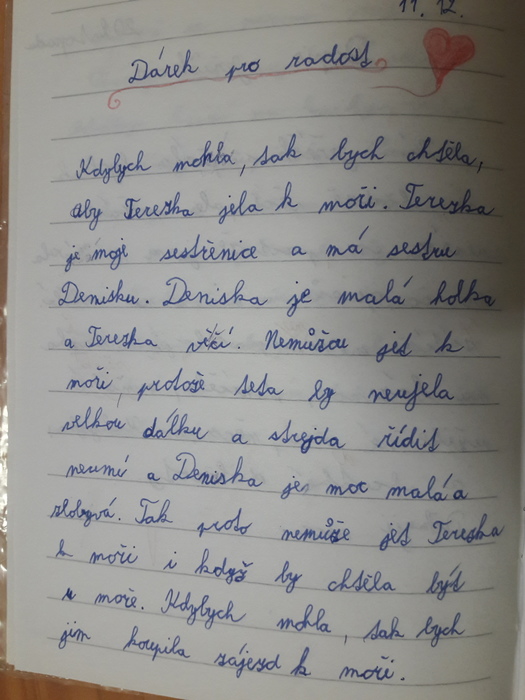 11. 12.
Dárek pro radost
Kdybych mohla, tak bych chtěla,
aby Terezka jela k moři. Terezka
je moje sestřenice a má sestru
Denisku. Deniska je malá holka
a Terezka věčí. Nemůžou jet k
moři, protože teta by neujela
velkou dálku a strejda řídit
neumí a Deniska je moc malá a
zlobyvá. Tak proto nemůže jet Terezka
k moři i když by chtěla být
u moře. Kdybych mohla, tak bych
jim koupila zájezd k moři.